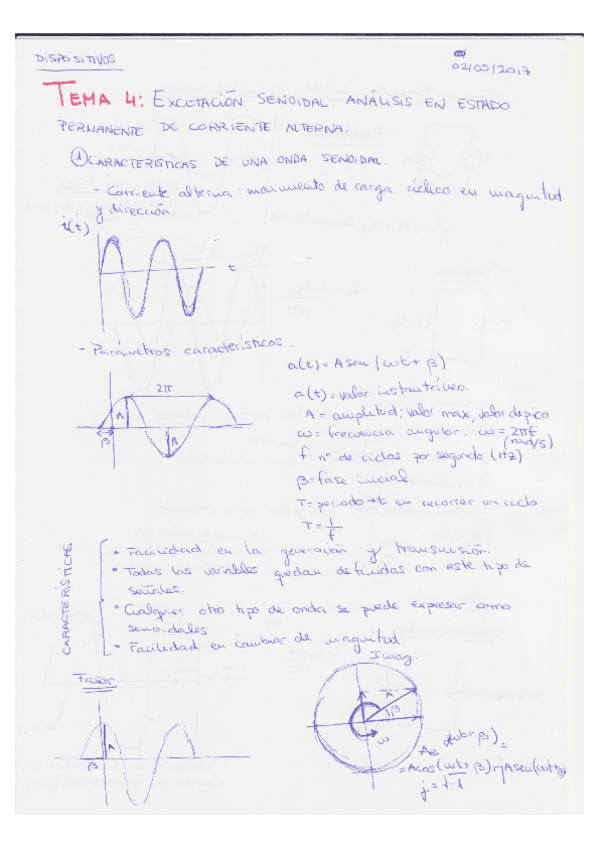 DISPOSITIVOS
02/05/2017
TEMA 4: EXCITACIÓN SENOIDAL. ANÁLISIS EN ESTADO
PERMANENTE DE CORRIENTE ALTERNA.
① CARACTERÍSTICAS DE UNA ONDA SENOIDAL.
- Corriente alterna: movimiento de carga cíclico en magnitud
y dirección.
i(t)
t
- Parámetros característicos.
2π
A
A
β
a(t) = A sen (ωt + β)
a(t) = valor instantáneo.
A = amplitud; valor max, valor de pico
ω = frecuencia angular. ω = 2πf
(rad/s)
f: nº de ciclos por segundo (Hz)
β = fase inicial
T = periodo → t en recorrer en ciclo
T = 1/f
CARACTERÍSTICAS
• Facilidad en la generación y transmisión.
• Todas las variables quedan definidas con este tipo de
señales.
• Cualquier otro tipo de onda se puede expresar como
senoidales
• Facilidad en cambiar de magnitud.
Fasor
A
β
Imag.
A
β
ω
Ae^j(ωt+β) =
= A cos(ωt + β) + j A sen(ωt + β)
j = √-1